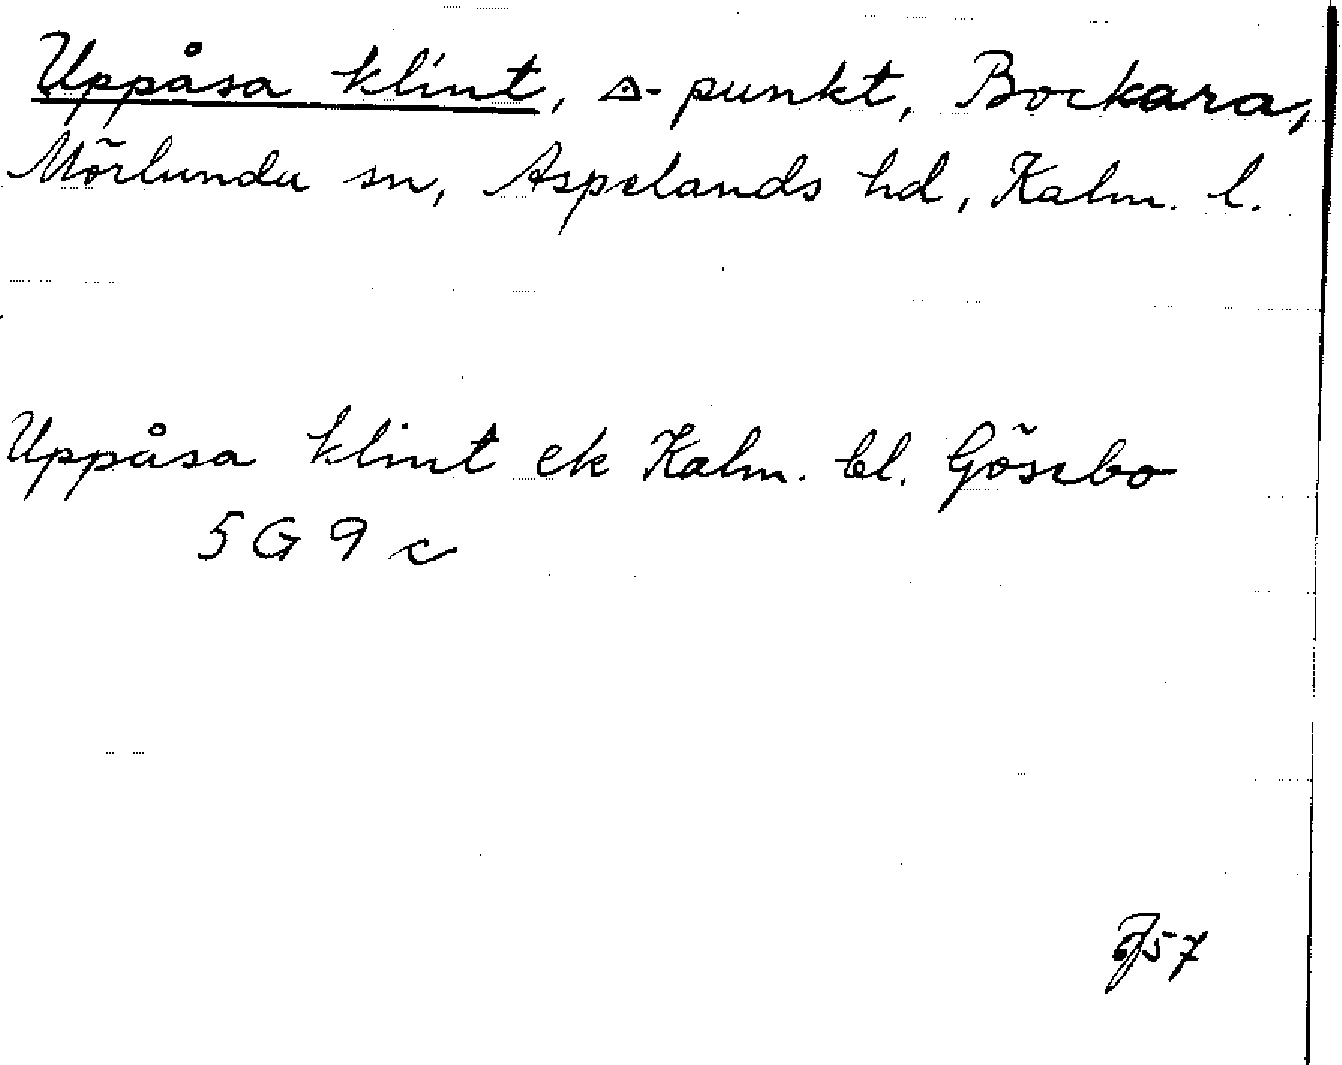 Uppåsa klint, △-punkt, Bockara,
Mörlunda sn, Aspelands hd, Kalm. l.
Uppåsa klint ek Kalm. bl. Gösebo
5 G 9 c
57